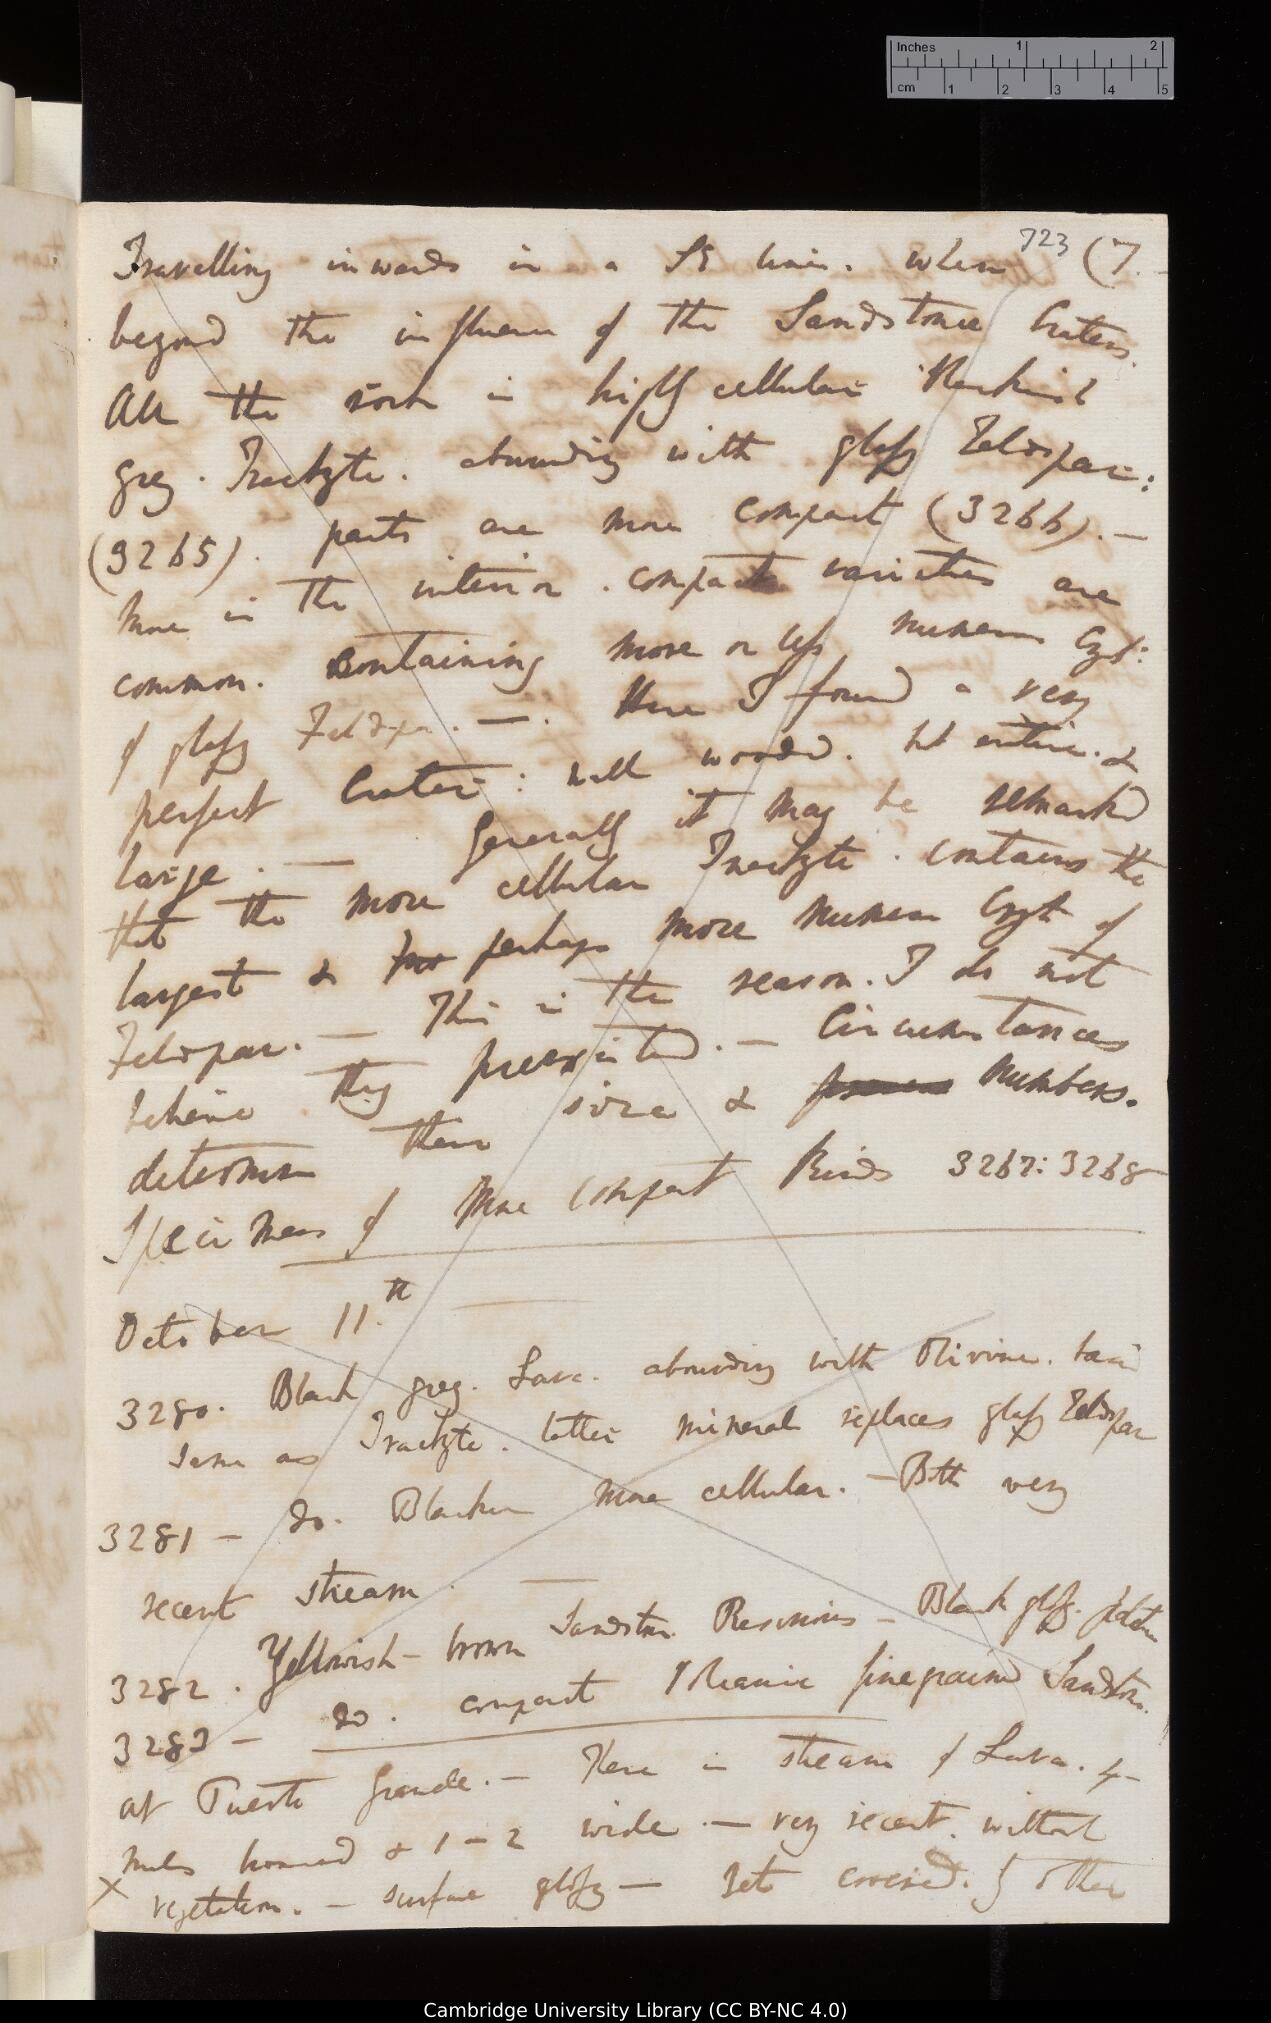 Inches 1 2
cm 1 2 3 4 5
723 (7.
Travelling inwards in a SE line. when
beyond the influence of the Sandstone Craters.
All the rock is highly cellular Blackish
grey. Trachyte. abounding with glassy Feldspar:
(3265). parts are more compact (3266). —
More in the interior. compact varieties are
common. containing more or less numerous Cryst:
of glassy Feldspar. —. Here I found a very
perfect Crater: well wooded. but entire. &
large. — Generally it may be remarked
that the more cellular Trachyte. contains the
largest & perhaps more numerous Cryst of
Feldspar. — This is the reason. I do not
believe they preexisted. — Circumstances
determine their size & numbers.
Specimens of More compact Kinds 3267: 3268
October 11.th
3280. Black grey. Lava. abounding with Olivine. basis
same as Trachyte. latter mineral replaces glassy Feldspar
3281 — do. Blacker more cellular. — Both very
recent stream. —
3282. Yellowish-brown Sandstone Resinous — Black glassy.
3283 — do. compact Volcanic finegrained Sandstone.
at Puerto Grande. — Here is stream of Lava. 4-
miles broad & 1-2 wide. — very recent. without
X vegetation. — surface glossy — yet other
Cambridge University Library (CC BY-NC 4.0)